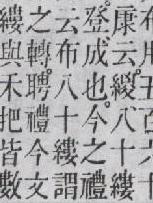 用五百
康云緵八十縷
登成也今之禮
云布八十縷謂
之轉聘禮今文
縷與禾把皆數